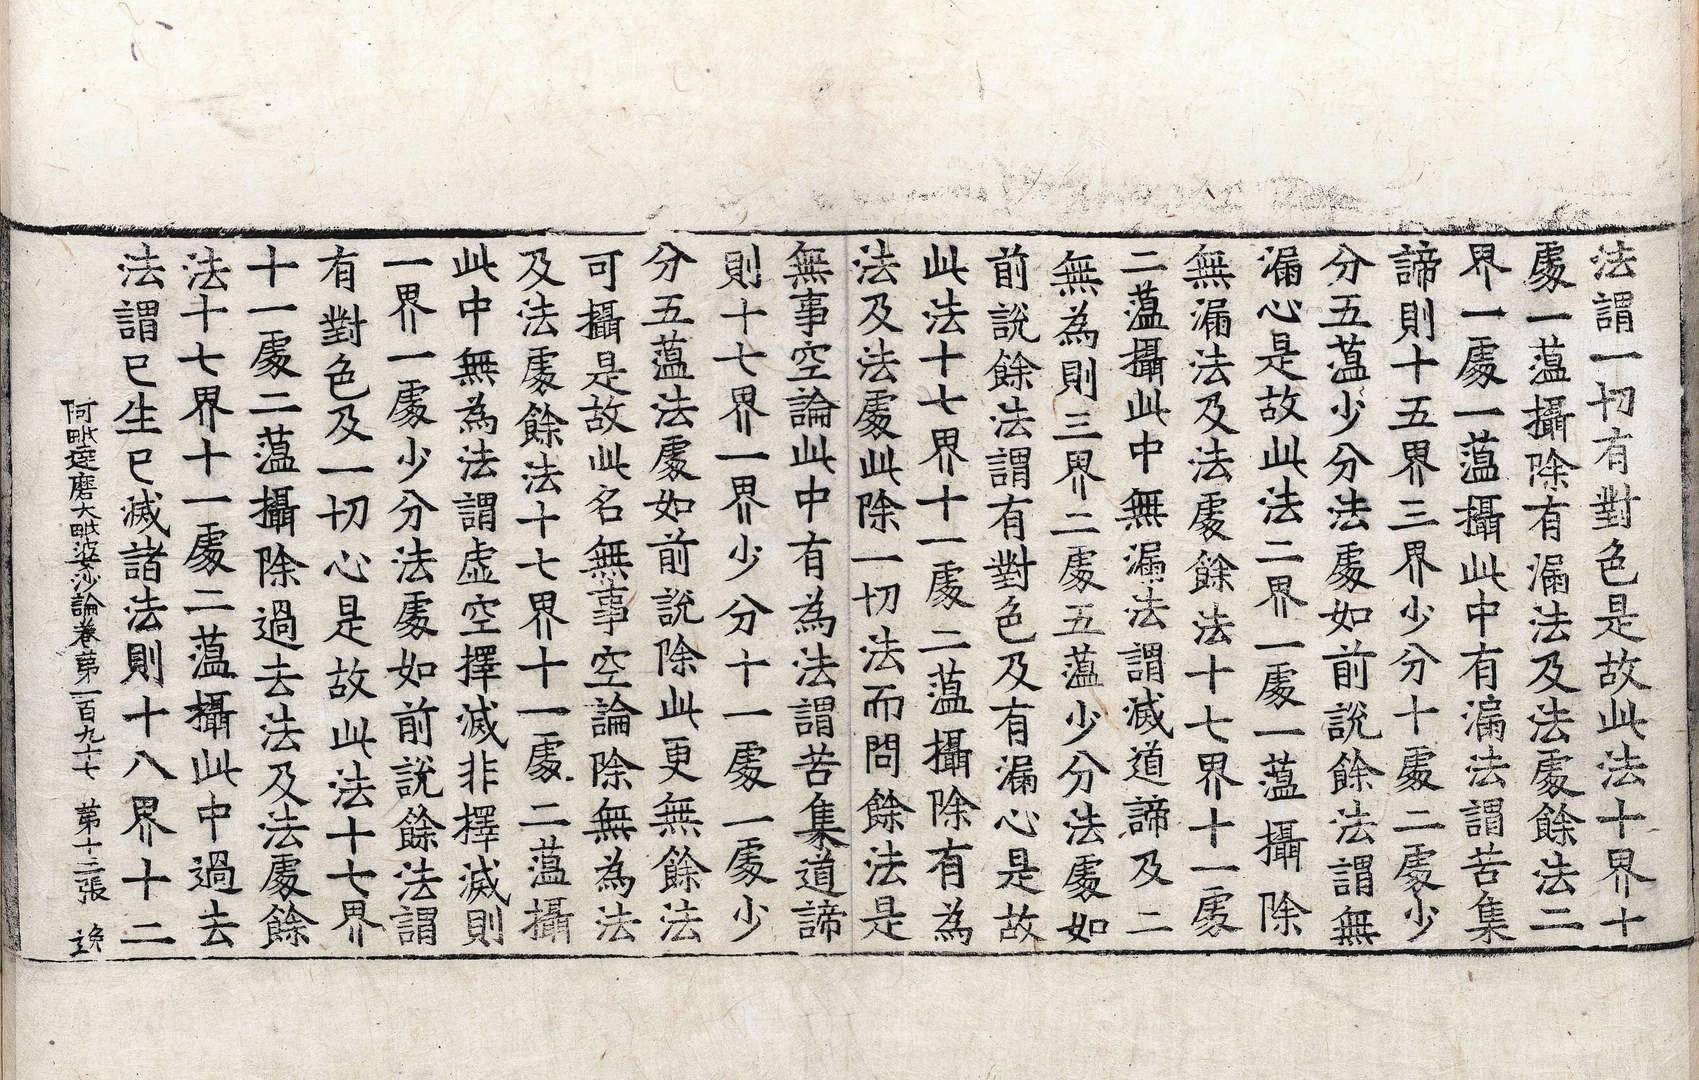 法謂一切有對色是故此法十界十
處一蘊攝除有漏法及法處餘法二
界一處一蘊攝此中有漏法謂苦集
諦則十五界三界少分十處二處少
分五蘊少分法處如前說餘法謂無
漏心是故此法二界一處一蘊攝除
無漏法及法處餘法十七界十一處
二蘊攝此中無漏法謂滅道諦及二
無為則三界二處五蘊少分法處如
前說餘法謂有對色及有漏心是故
此法十七界十一處二蘊攝除有為
法及法處此除一切法而問餘法是
無事空論此中有為法謂苦集道諦
則十七界一界少分十一處一處少
分五蘊法處如前說除此更無餘法
可攝是故此名無事空論除無為法
及法處餘法十七界十一處二蘊攝
此中無為法謂虛空擇滅非擇滅則
一界一處少分法處如前說餘法謂
有對色及一切心是故此法十七界
十一處二蘊攝除過去法及法處餘
法十七界十一處二蘊攝此中過去
法謂已生已滅諸法則十八界十二
阿毗達磨大毗婆沙論卷第一百九十七 第十三張